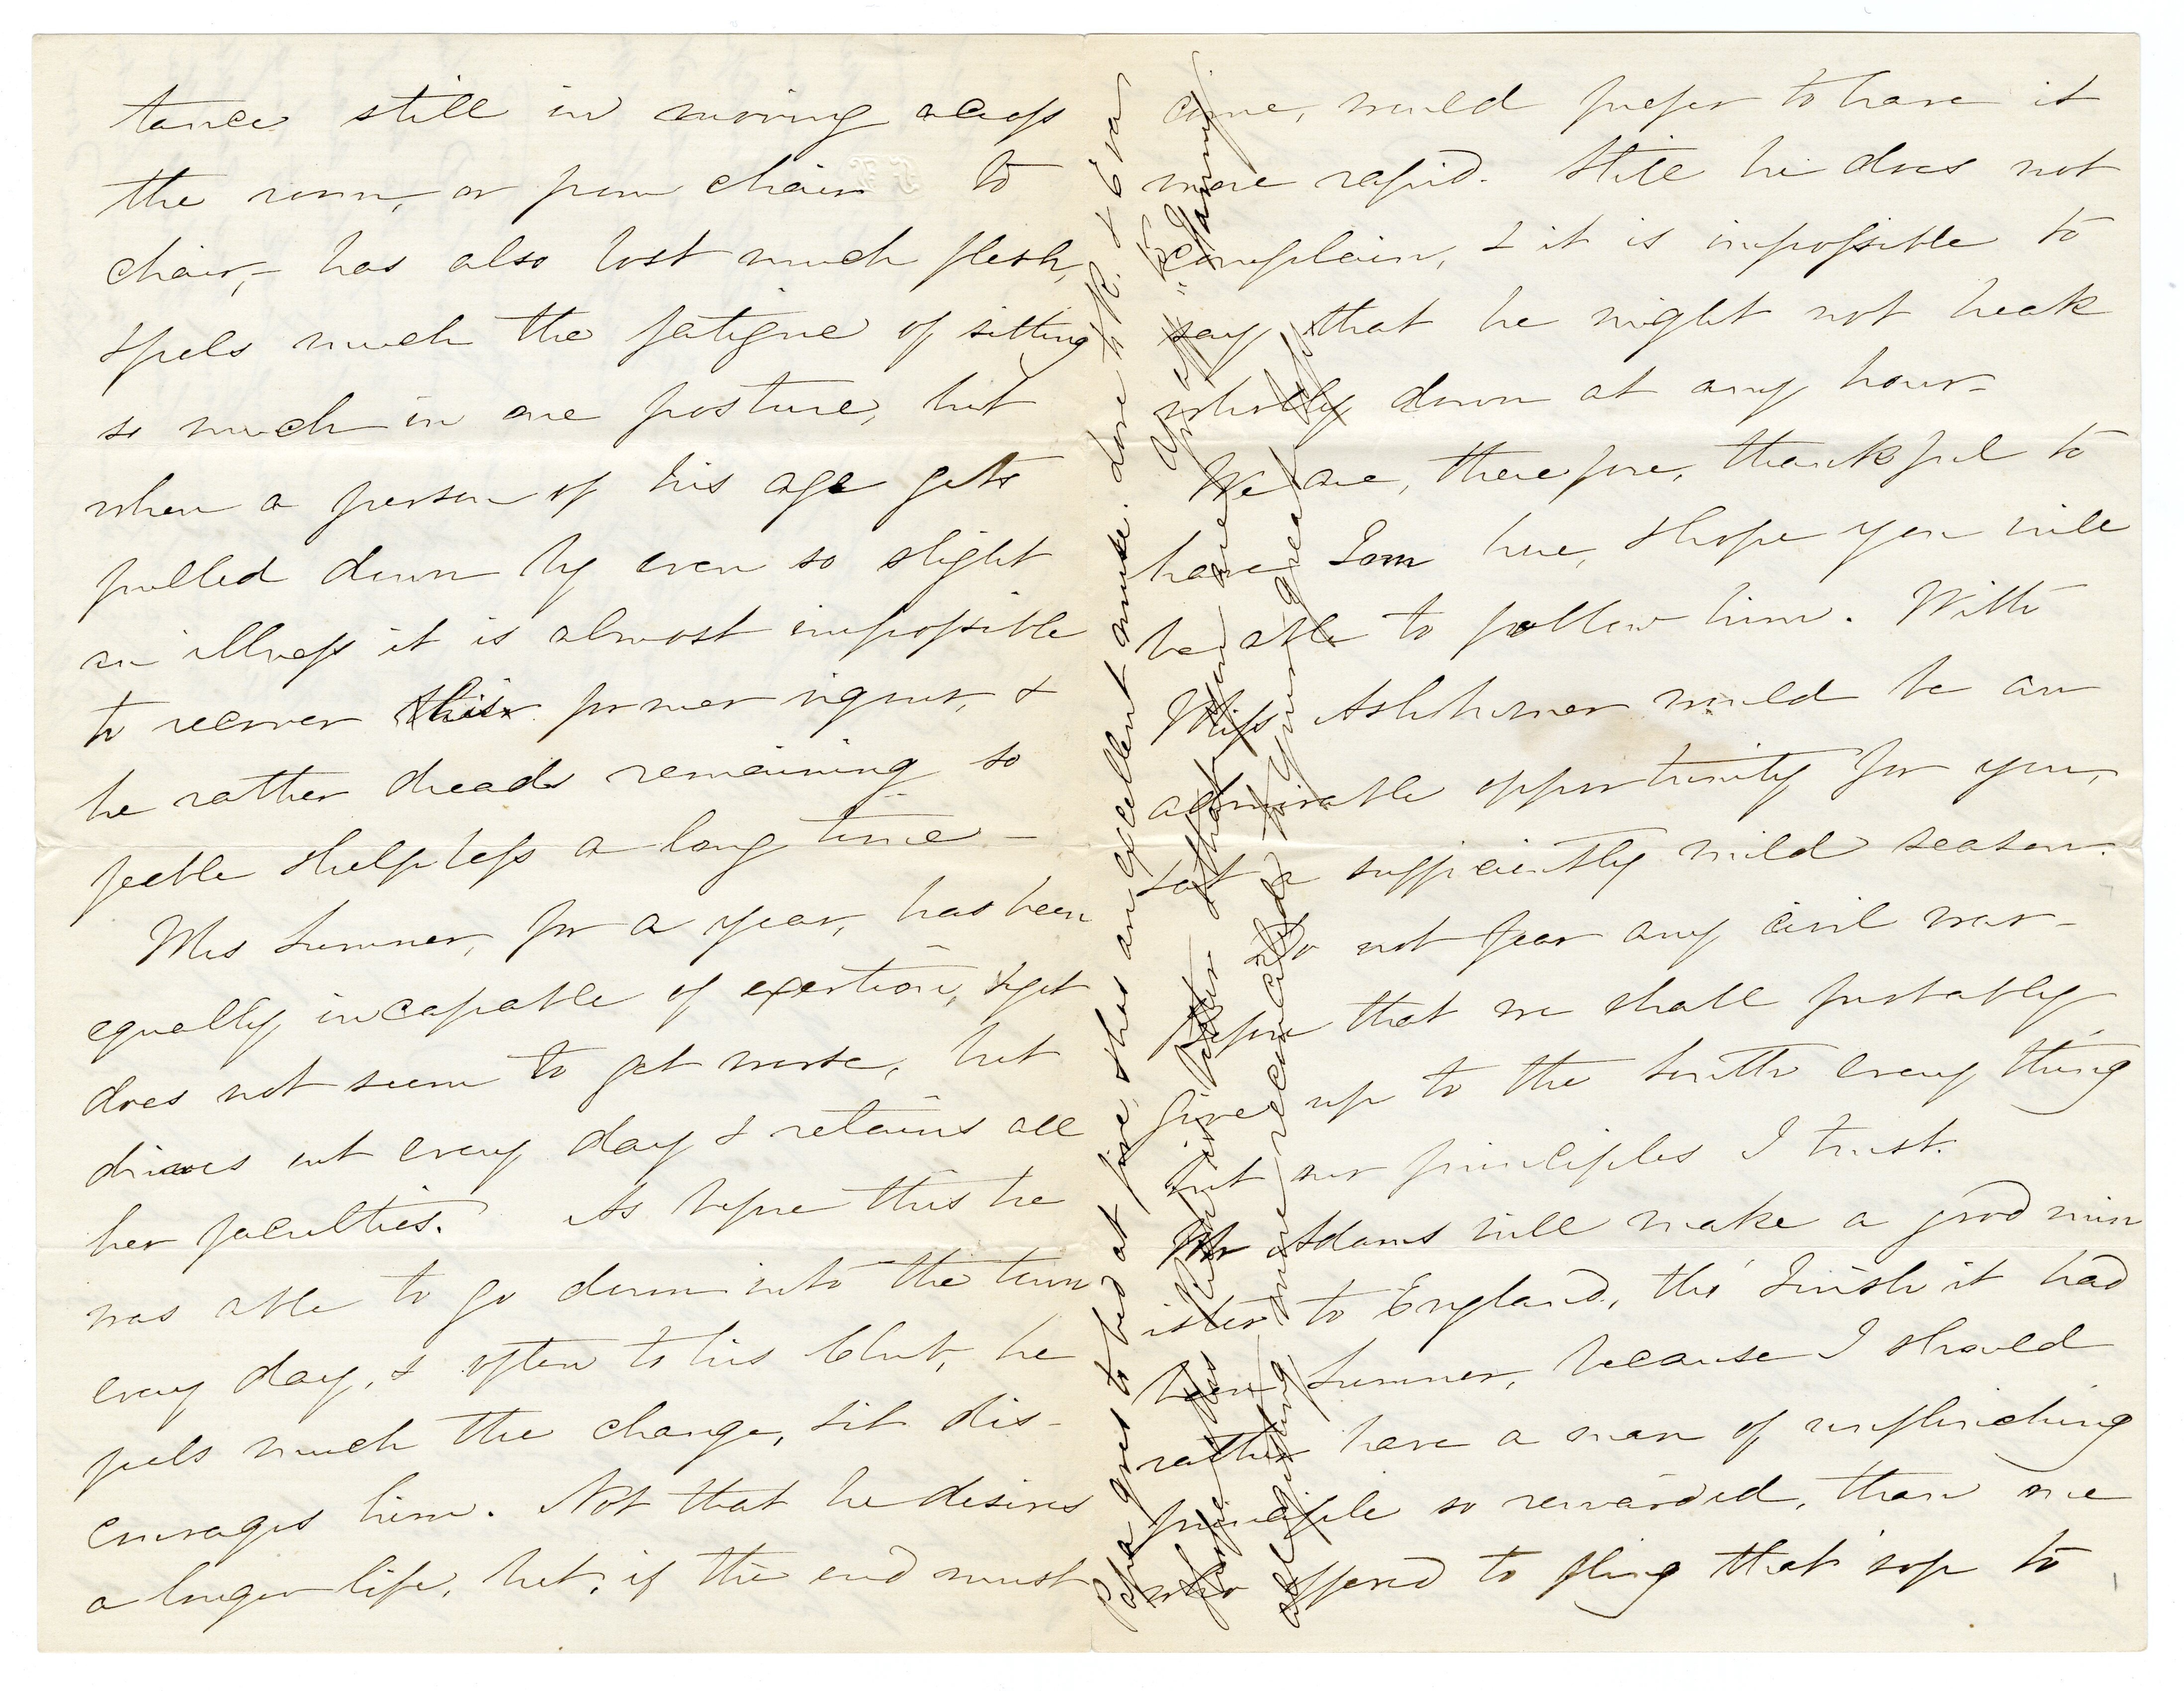 tance still in moving across
the room, or from chair to
chair,- has also lost much flesh,
& feels much the fatigue of sitting
so much in one posture, but
when a person of his age gets
pulled down by even so slight
an illness it is almost impossible
to recover this former vigour, &
he rather dreads remaining so
feeble & helpless a long time -
Mrs Sumner, for a year, has been
equally incapable of exertion, & yet
does not seem to get worse, but
drives out every day & retains all
her faculties. As before this he
was able to go down into the town
every day, & often to his Club, he
feels much the change, & it dis-
courages him. Not that he desires
a longer life, but, if the end must
come, would prefer to have it
more rapid. Still he does not
complain, & it is impossible to
say that he might not break
wholly down at any hour-
We are, therefore, thankful to
have Tom here, & hope you will
be able to follow him. With
Miss Ashburner would be an
admirable opportunity for you,
& at a sufficiently mild season.
Do not fear any civil war-
before that we shall probably
give up to the South every thing
but our principles I trust.
Mr Adams will make a good min
ister to England, tho' I wish it had
been Sumner, because I should
rather have a man of unflinching
principle so rewarded, than one
who offered to fling that sop to
Papa goes to bed at five, & has an excellent nurse. Love to R. & Eva
I hope this will find you better & that you are
all getting more reconciled to your great
"Fanny